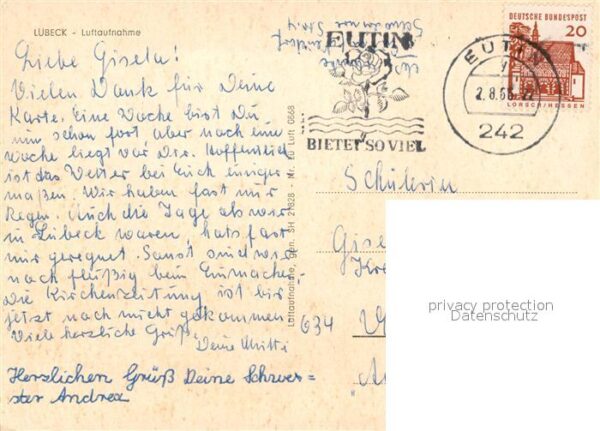 LÜBECK - Luftaufnahme
Liebe Gisela!
Vielen Dank für Deine
Karte. Eine Woche bist Du
nun schon fort, aber noch eine
Woche liegt vor Dir. Hoffentlich
ist das Wetter bei Euch einiger
maßen. Wir haben fast nur
Regen. Auch die Tage als wir
in Lübeck waren, hats fast
nur geregnet. Sonst sind wir
noch fleißig beim Einmachen.
Die Kirchenzeitung ist bis
jetzt noch nicht gekommen
Viele herzliche Grüße
Deine Mutti
Herzlichen Gruß Deine Schwes=
ter Andrea
Luftaufnahme, gen. SH 21828 - Nr. zu Luft 0668
EUTIN
BIETET SO VIEL
EUTIN
2.8.66
242
DEUTSCHE BUNDESPOST
20
LORSCH/HESSEN
Schülerin
Gise
Kre
634
privacy protection
Datenschutz